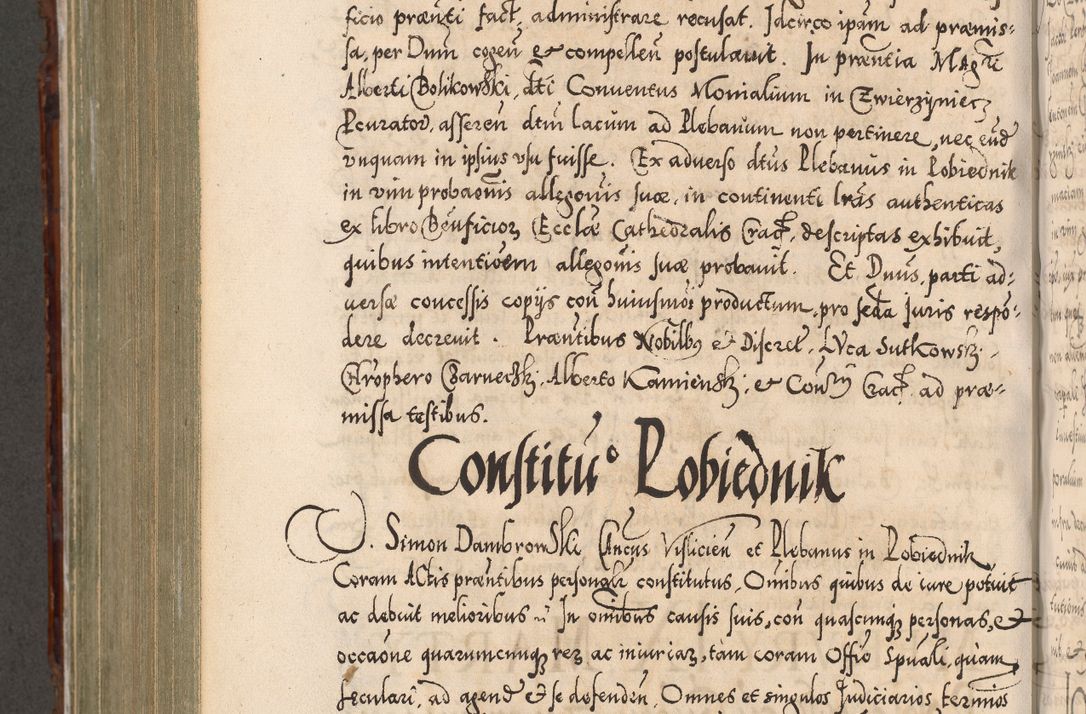 ficio praeñti fact, administrare recusat. Idcirco ipām ad praemis:
sa, per Dnm̄ cogeñ et compelleñ postulauit. In praeñtia Magci
Alberti Bolikowski, dt̃i Conuentus Monialium in Zwierzyniecz
Pcurator, asserēn dctm lacum ad Plebanum non pertinere, nec eūd
vnquam in ipsius vsu fuisse. Ex aduerso dtus Plebanus in Pobiednik
in vim probaoñis allegoñis suae, in continenti lrãs authenticas
ex libro Beñficioz Ecclae Cathedralis Crac. descriptas exhibuit,
quibus intentioem allegoñis suae probauit. Et Dnus, parti ad:
uersae concessis copijs coñ huiusmoi productum, pro seda iuris respõ:
dere decreuit. Praeñtibus Nobilbꝫ et Discret. Lvca Sutkowsky.
Chrophero Czarneczky. Alberto Kamiensky. et Cons Crac. ad prae-
missa testibus.
Constitu° Pobiednik
D. Simon Dambrowski Cancus Visliciēn et Plebanus in Pobiednik
Coram Actis praeñtibus personalr constitutus, Omibus quibus de iure potuit
ac debuit melioribus In omibus causis suis, con quascunqꝫ personas, et
occaõne quarumcunqꝫ rez ac iniuriaz, tam coram Offio Spuali, quam
seculari, ad agend et se defendeñ, Omnes et singulos Judiciarios terminos